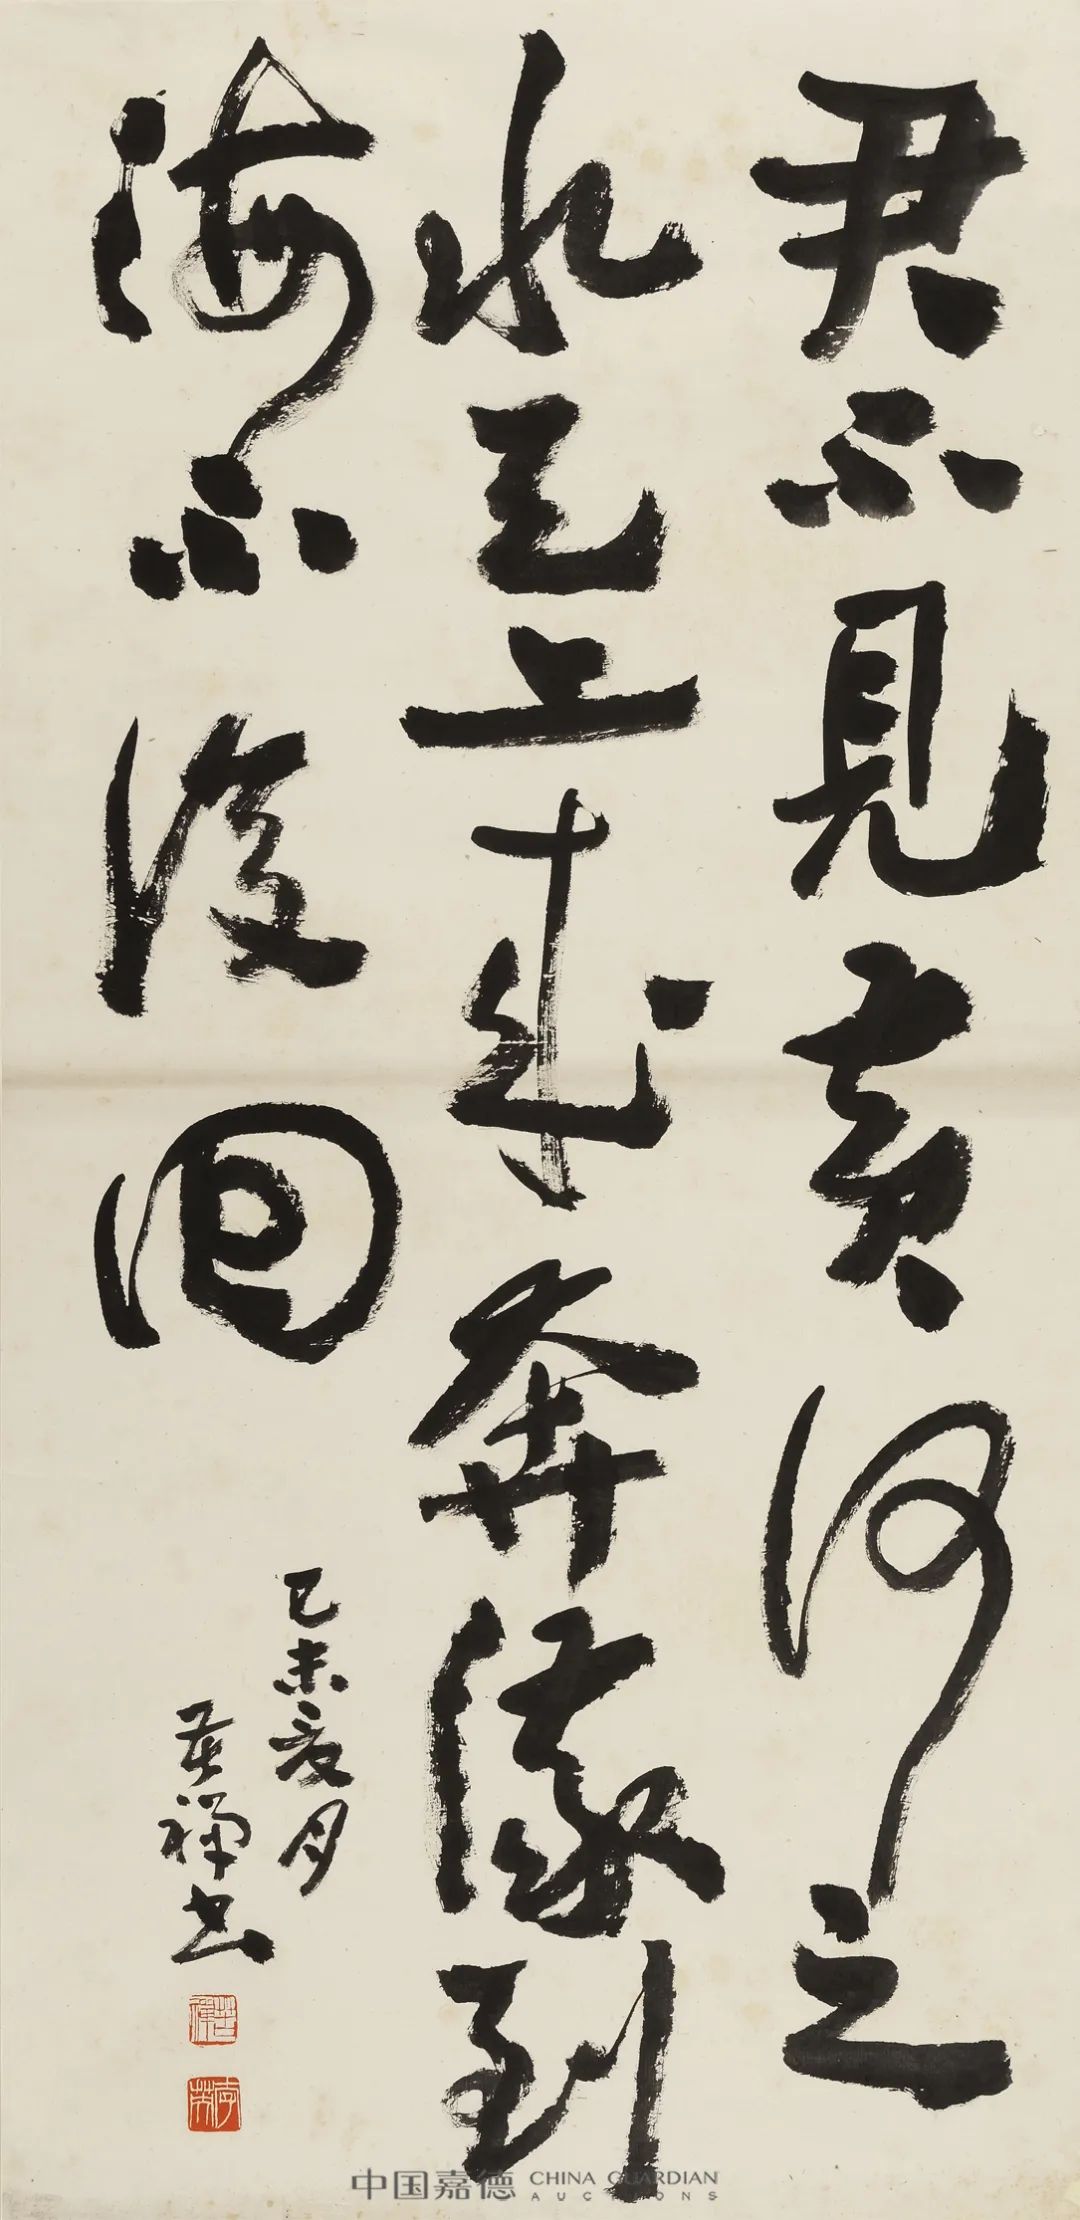 君不見黄河之
水天上来奔流到
海不復回
己未夏月
苦禪书
苦禪
李英
中国嘉德 CHINA GUARDIAN AUCTIONS